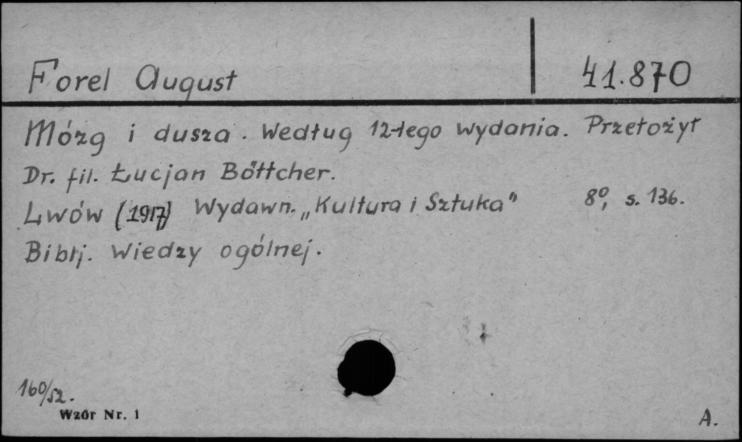 Forel August 41.870
Mózg i dusza. Według 12-tego wydania. Przełożył
Dr. fil. Łucjan Böttcher.
Lwów (1917) Wydawn. „Kultura i Sztuka" 8°, s. 136.
Biblj. Wiedzy ogólnej.
160/52.
Wzór Nr. 1
A.